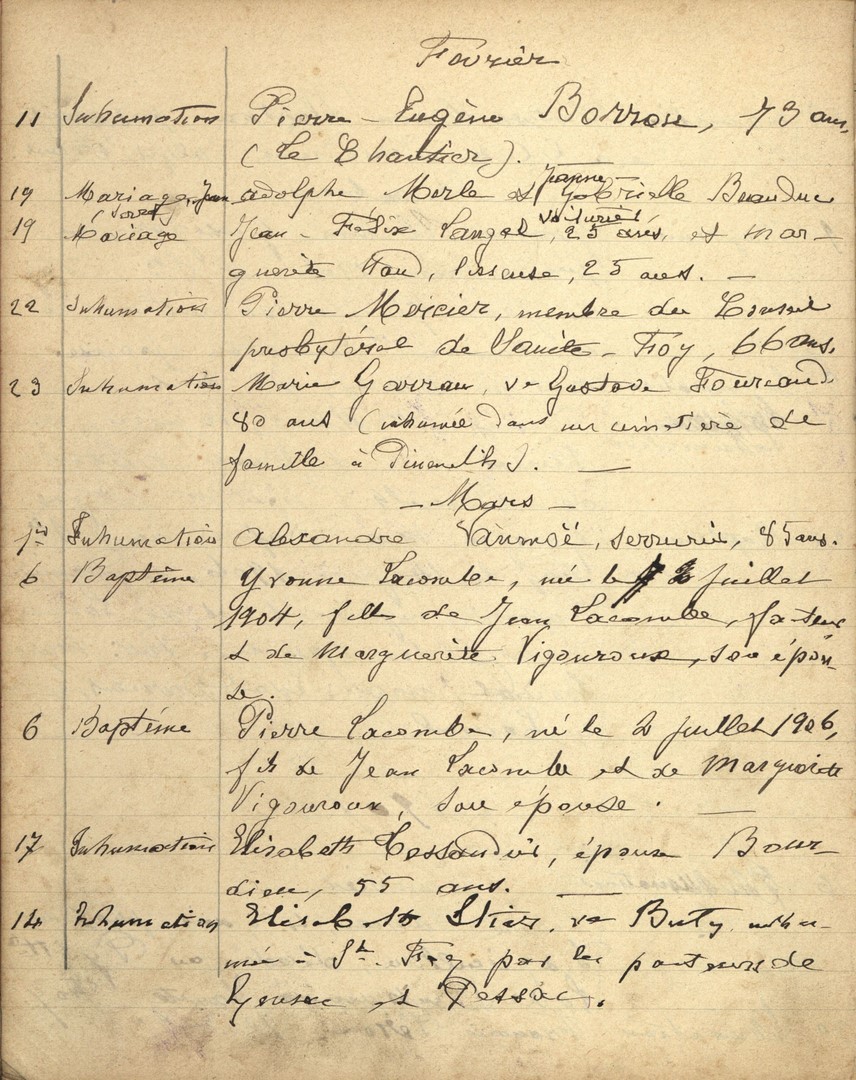 Février
11 Inhumation Pierre-Eugène Borron, 73 ans,
(Le Chantier).
Jeanne
19 Mariage, Jean adolphe Merle et Gabrielle Beauduc
voiturier
19 Mariage Jean-Félix Langel, 25 ans, et Mar-
guerite, lisseuse, 25 ans. —
22 Inhumation Pierre Mercier, membre du Conseil
presbytéral de Sainte-Foy, 66 ans.
23 Inhumation Marie Garrau, ve Gustave Fourcaud
80 ans (inhumée dans un cimetière de
famille à). —
— Mars —
1er Inhumation Alexandre, serrurier, 85 ans.
6 Baptême Yvonne Lacombe, née le 2 Juillet
1904, fille de Jean Lacombe, facteur
et de Marguerite Vigouroux, son épou-
se.
6 Baptême Pierre Lacombe, né le 2 juillet 1906,
fils de Jean Lacombe et de Marguerite
Vigouroux, son épouse. —
17 Inhumation Elisabeth, épouse Bour-
dieu, 55 ans. —
14 Inhumation Elisabeth, ve Buty, inhu-
mée à Ste. Foy par les pasteurs de
Gensac et Pessac.